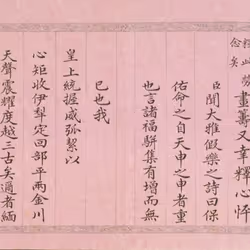 念矣
勞畫籌又幸釋心怦
臣聞大雅假樂之詩曰保
佑命之自天申之申者重
也言諸福駢集有增而無
已也我
皇上統握威弧絜以
心矩收伊犂定回部平兩金川
天聲震耀度越三古矣邇者緬